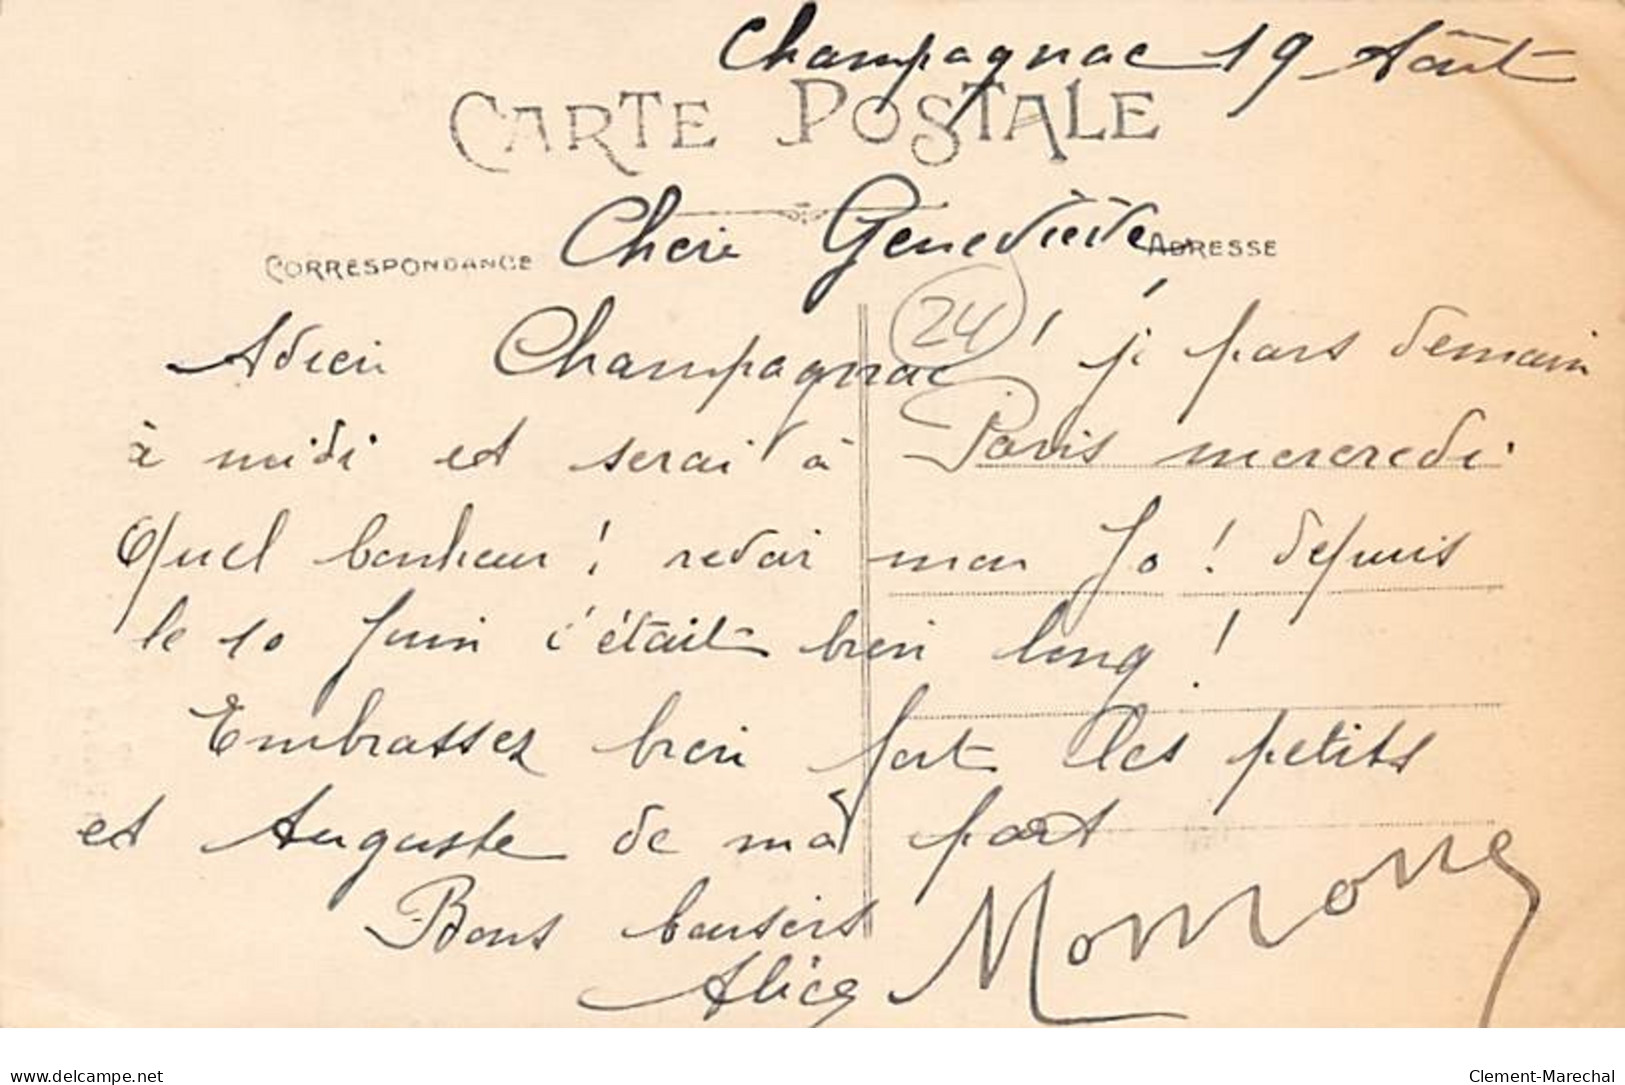 Champagnac 19 Août
CARTE POSTALE
CORRESPONDANCE
Chère Geneviève,
ADRESSE
24
Adieu Champagnac ! je pars demain
à midi et serai à Paris mercredi.
Quel bonheur ! revoir mon Jo ! depuis
le 10 Juin c'était bien long !
Embrassez bien fort les petits
et Auguste de ma part
Bons baisers
Alice Momone
delcampe.net
Clement-Marechal